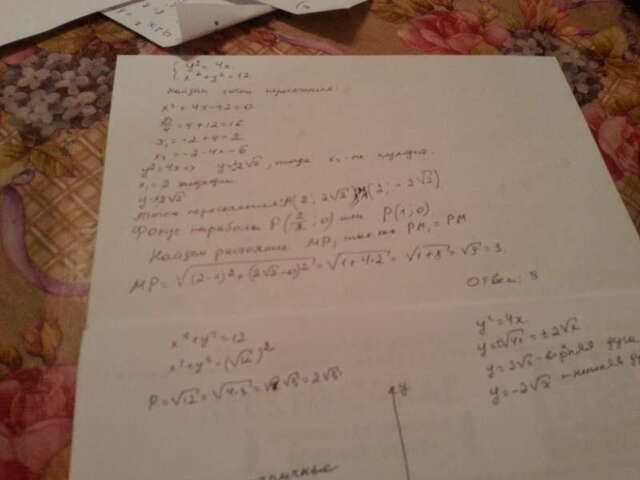 y² = 4x
x² + y² = 12
Найдем точки пересечения:
x² + 4x - 12 = 0
D/4 = 4 + 12 = 16
x₁ = -2 + 4 = 2
x₂ = -2 - 4 = -6
y² = 4x => y = ±2√x, тогда x₂ - не подходит.
x₁ = 2 подходит
y = ±2√2
Точки пересечения M(2; 2√2) M₁(2; -2√2)
Фокус параболы P(2/2; 0) или P(1; 0)
Найдем расстояние MP, так как PM₁ = PM
MP = √((2-1)² + (2√2-0)²) = √(1+4·2) = √(1+8) = √9 = 3.
Ответ: 3
x² + y² = 12
x² + y² = (√12)²
R = √12 = √(4·3) = 2√3
y² = 4x
y = ±√4x = ±2√x
y = 2√x - верхняя дуга
y = -2√x - нижняя
y